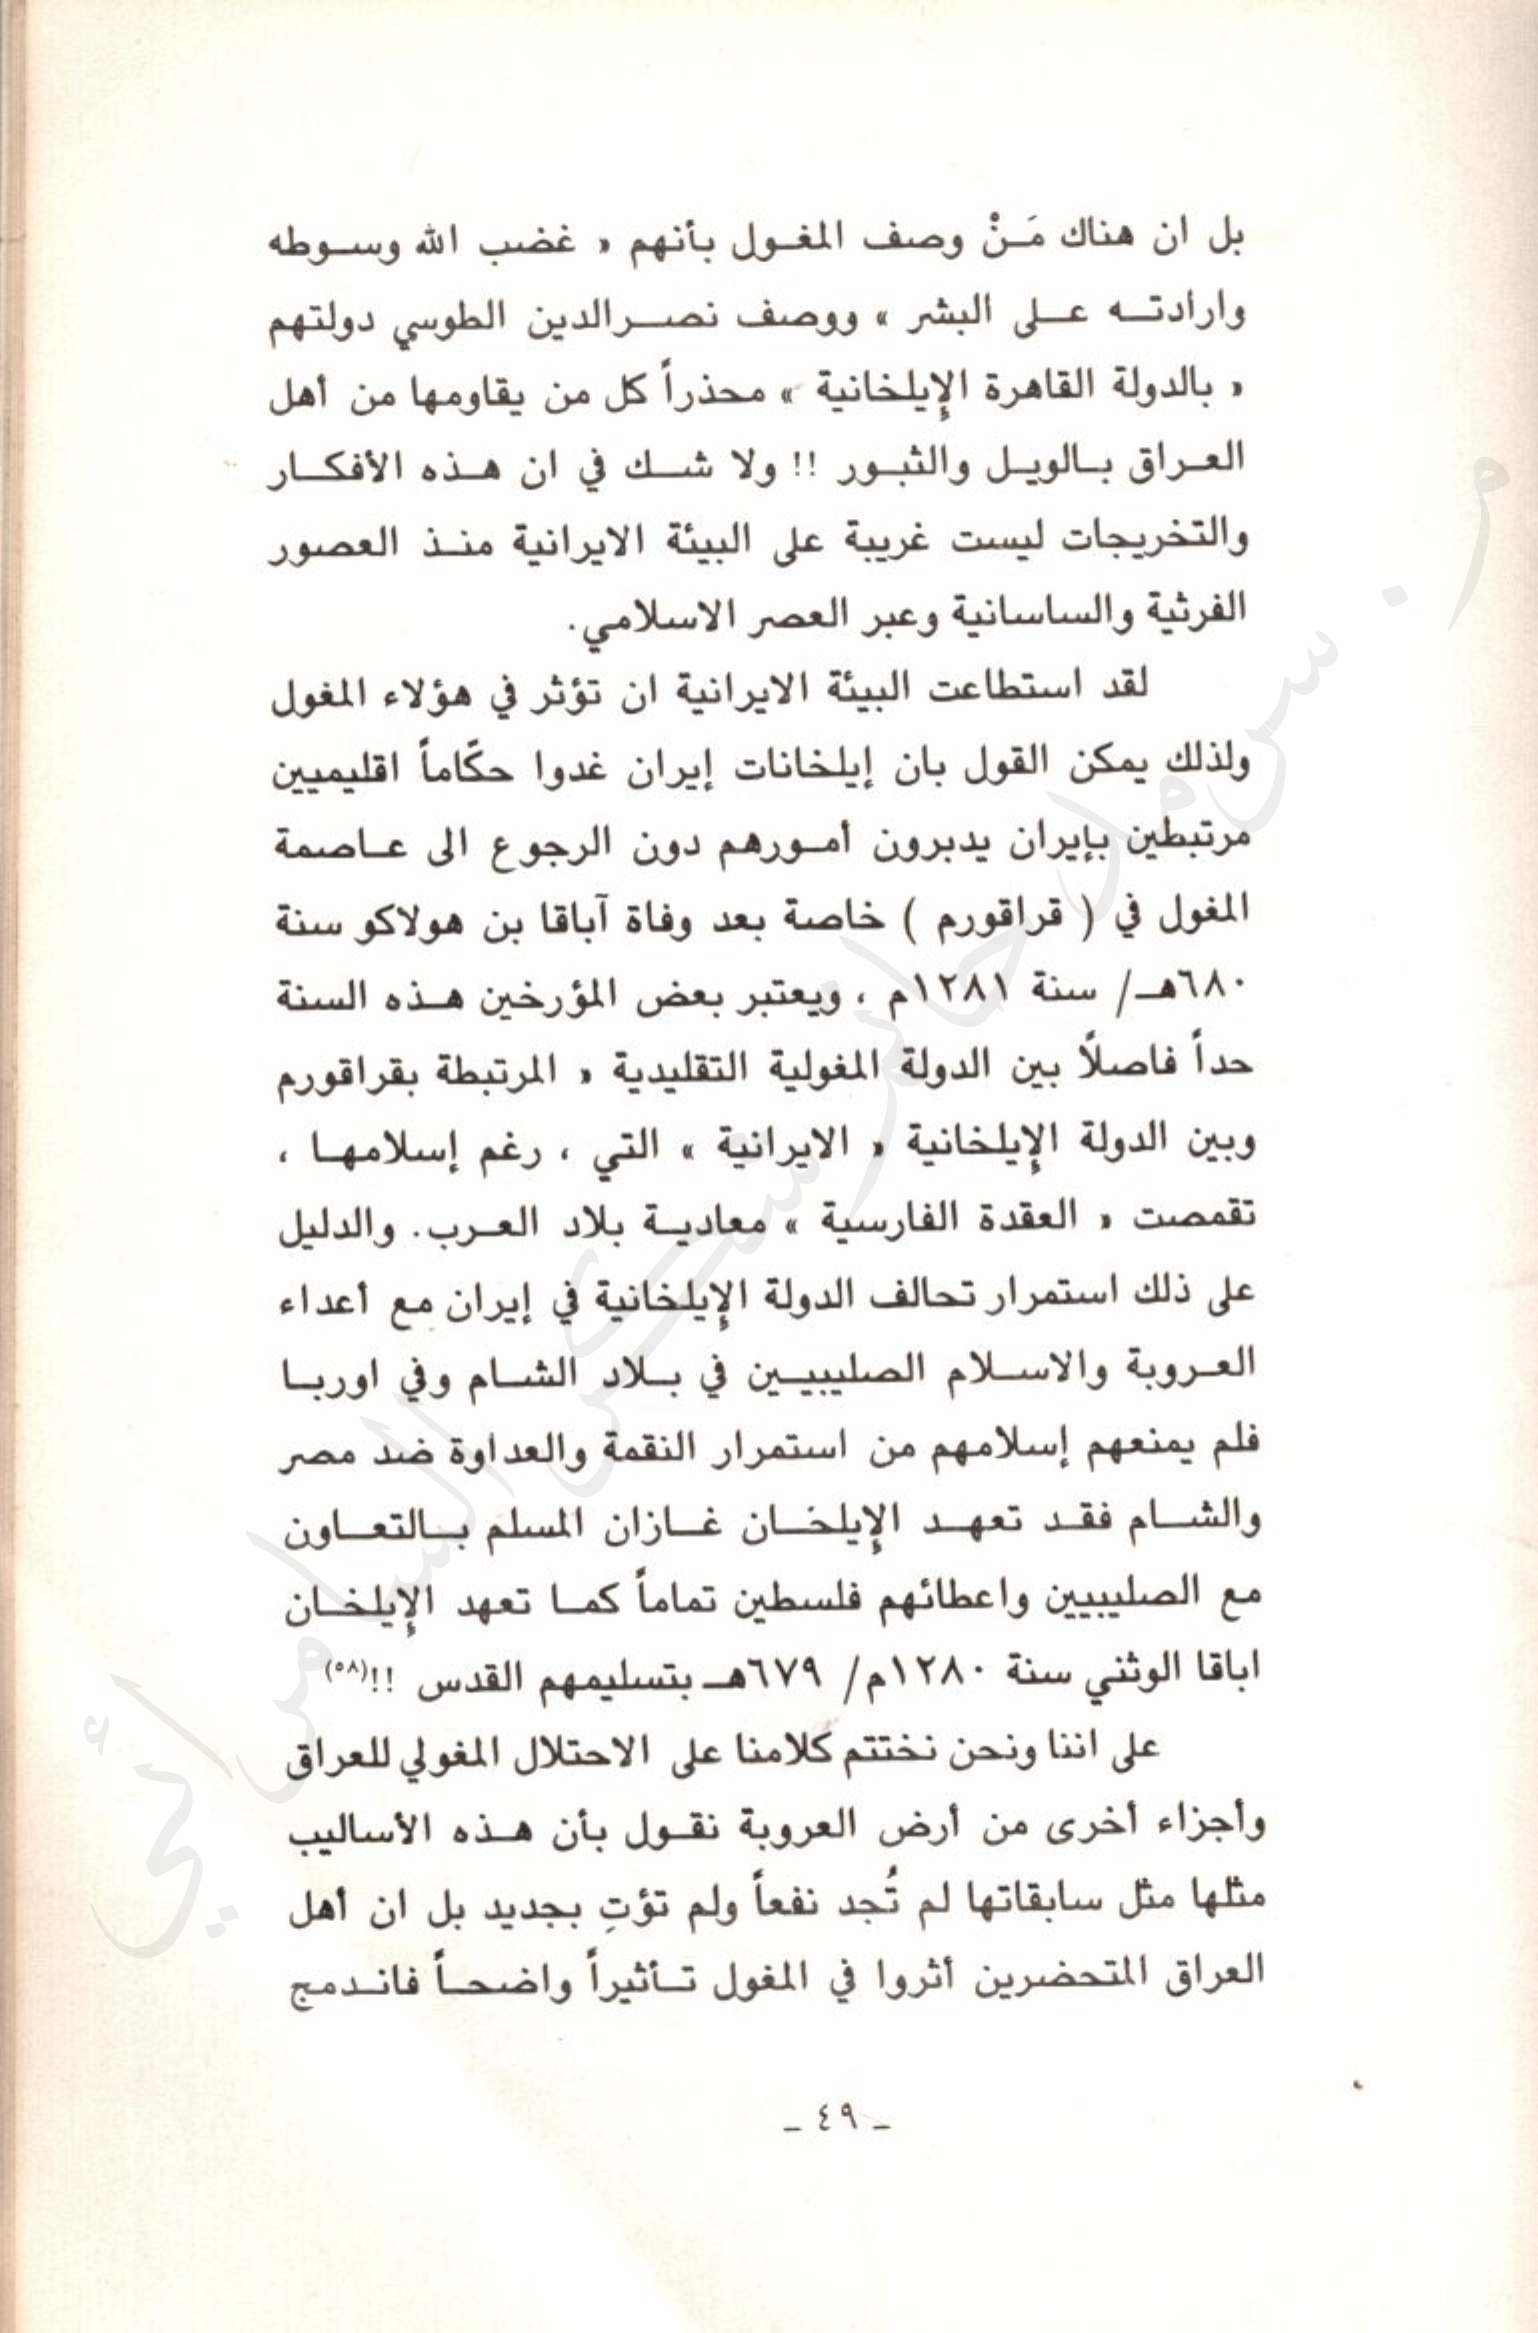 بل ان هناك مَنْ وصف المغول بأنهم « غضب الله وسوطه
وارادته على البشر » ووصف نصرالدين الطوسي دولتهم
« بالدولة القاهرة الإيلخانية » محذراً كل من يقاومها من أهل
العراق بالويل والثبور !! ولا شك في ان هذه الأفكار
والتخريجات ليست غريبة على البيئة الايرانية منذ العصور
الفرثية والساسانية وعبر العصر الاسلامي.
لقد استطاعت البيئة الايرانية ان تؤثر في هؤلاء المغول
ولذلك يمكن القول بان إيلخانات إيران غدوا حكّاماً اقليميين
مرتبطين بإيران يدبرون أمورهم دون الرجوع الى عاصمة
المغول في ( قراقورم ) خاصة بعد وفاة آباقا بن هولاكو سنة
٦٨٠هـ/ سنة ١٢٨١م ، ويعتبر بعض المؤرخين هذه السنة
حداً فاصلًا بين الدولة المغولية التقليدية « المرتبطة بقراقورم
وبين الدولة الإيلخانية « الايرانية » التي ، رغم إسلامها ،
تقمصت « العقدة الفارسية » معادية بلاد العرب. والدليل
على ذلك استمرار تحالف الدولة الإيلخانية في إيران مع أعداء
العروبة والاسلام الصليبيين في بلاد الشام وفي اوربا
فلم يمنعهم إسلامهم من استمرار النقمة والعداوة ضد مصر
والشام فقد تعهد الإيلخان غازان المسلم بالتعاون
مع الصليبيين واعطائهم فلسطين تماماً كما تعهد الإيلخان
اباقا الوثني سنة ١٢٨٠م/ ٦٧٩هـ بتسليمهم القدس !!(٥٨)
على اننا ونحن نختتم كلامنا على الاحتلال المغولي للعراق
وأجزاء أخرى من أرض العروبة نقول بأن هذه الأساليب
مثلها مثل سابقاتها لم تُجد نفعاً ولم تؤتِ بجديد بل ان أهل
العراق المتحضرين أثروا في المغول تأثيراً واضحاً فاندمج
ـ ٤٩ ـ